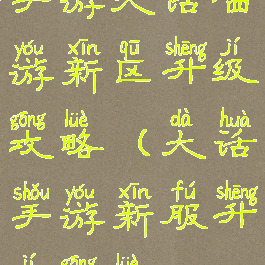 手游大话西
yóu xīn qū shēng jí
游新区升级
gōng lüè dà huà
攻略(大话
shǒu yóu xīn fú shēng
手游新服升
jí gōng lüè